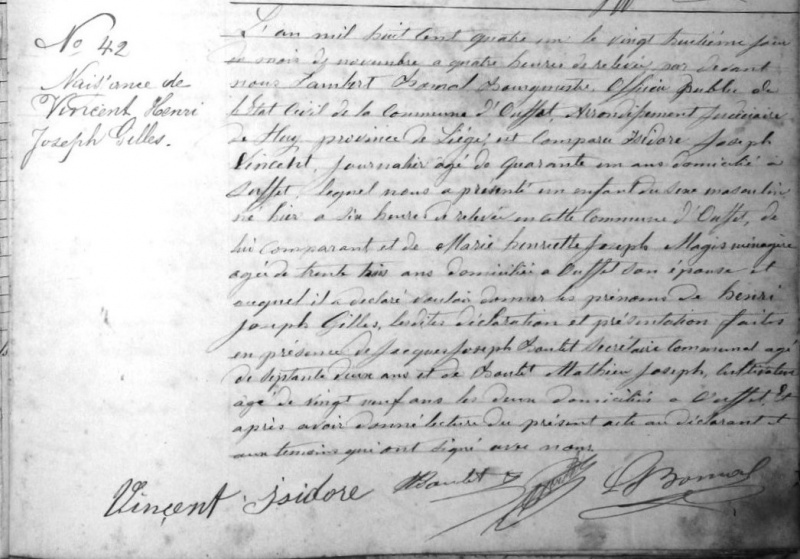 N° 42
Naissance de
Vincent Henri
Joseph Gilles.
L'an mil huit cent quatre un le vingt huitième jour
de mois de novembre a quatre heures de relevée par devant
nous Lambert Bomal Bourgmestre, Officier public de
l'Etat Civil de la Commune d'Ouffet, Arrondissement judiciaire
de Huy, province de Liége, est Comparu Isidore Joseph
Vincent, journalier agé de quarante un ans domicilié a
Ouffet, lequel nous a présenté un enfant du sexe masculin
né hier a six heures de relevée en cette Commune d'Ouffet, de
lui comparant et de Marie henriette Joseph Magis ménagère
agée de trente trois ans domiciliée a Ouffet son épouse et
auquel il a déclaré vouloir donner les prénoms de henri
joseph Gilles, lesdites déclaration et présentation faites
en présence de Jacques Joseph Boulet Secrétaire Communal agé
de septante deux ans et de Boulet Mathieu Joseph, Cultivateur
agé de vingt neuf ans les deux domiciliés a Ouffet, Et
après avoir donné lecture du présent acte au déclarant et
aux témoins qui ont signé avec nous
Vinçent isidore Boulet L Bomal